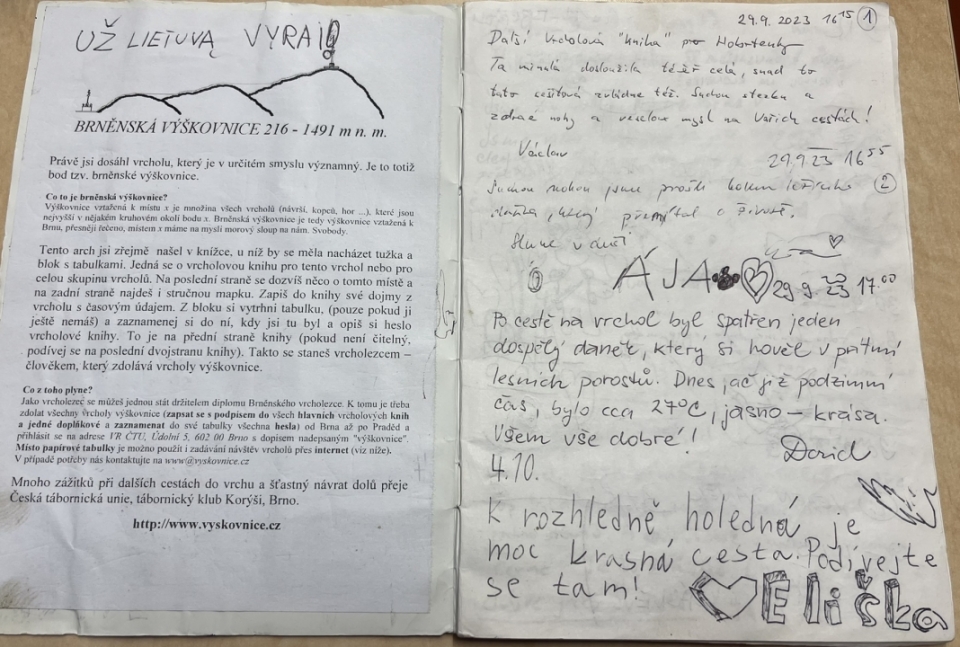 UŽ LIETUVĄ VYRAI
BRNĚNSKÁ VÝŠKOVNICE 216 - 1491 m n. m.
Právě jsi dosáhl vrcholu, který je v určitém smyslu významný. Je to totiž
bod tzv. brněnské výškovnice.
Co to je brněnská výškovnice?
Výškovnice vztažená k místu x je množina všech vrcholů (návrší, kopců, hor ...), které jsou
nejvyšší v nějakém kruhovém okolí bodu x. Brněnská výškovnice je tedy výškovnice vztažená k
Brnu, přesněji řečeno, místem x máme na mysli morový sloup na nám. Svobody.
Tento arch jsi zřejmě našel v knížce, u níž by se měla nacházet tužka a
blok s tabulkami. Jedná se o vrcholovou knihu pro tento vrchol nebo pro
celou skupinu vrcholů. Na poslední straně se dozvíš něco o tomto místě a
na zadní straně najdeš i stručnou mapku. Zapiš do knihy své dojmy z
vrcholu s časovým údajem. Z bloku si vytrhni tabulku, (pouze pokud ji
ještě nemáš) a zaznamenej si do ní, kdy jsi tu byl a opiš si heslo
vrcholové knihy. To je na přední straně knihy (pokud není čitelný,
podívej se na poslední dvojstranu knihy). Takto se staneš vrcholezcem –
člověkem, který zdolává vrcholy výškovnice.
Co z toho plyne?
Jako vrcholezec se můžeš jednou stát držitelem diplomu Brněnského vrcholezce. K tomu je třeba
zdolat všechny vrcholy výškovnice (zapsat se s podpisem do všech hlavních vrcholových knih
a jedné doplňkové a zaznamenat do své tabulky všechna hesla) od Brna až po Praděd a
přihlásit se na adrese VR ČTU, Údolní 5, 602 00 Brno s dopisem nadepsaným "výškovnice".
Místo papírové tabulky je možno použít i zadávání návštěv vrcholů přes internet (viz níže).
V případě potřeby nás kontaktujte na www@vyskovnice.cz
Mnoho zážitků při dalších cestách do vrchu a šťastný návrat dolů přeje
Česká tábornická unie, tábornický klub Korýši, Brno.
http://www.vyskovnice.cz
29.9. 2023 16 15 1
Další vrcholová "kniha" pro
Ta minulá dosloužila téměř celá, snad to
tato sešitová zvládne též. Suchou stezku a
zdravé nohy a veselou mysl na Vašich cestách!
Václav
29.9 23 16 55
2
jsme prošli kolem
, který přemýtal o životě.
Slunce v duši
ÁJA 29 9 23 17:00
Po cestě na vrchol byl spatřen jeden
dospělý daněk, který si hověl v přítmí
lesních porostů. Dnes, ač již podzimní
čas, bylo cca 27°C, jasno – krása.
Všem vše dobré!
David
4.10.
K rozhledně holedná je
moc krasná cesta. Podívejte
se tam!
Eliška